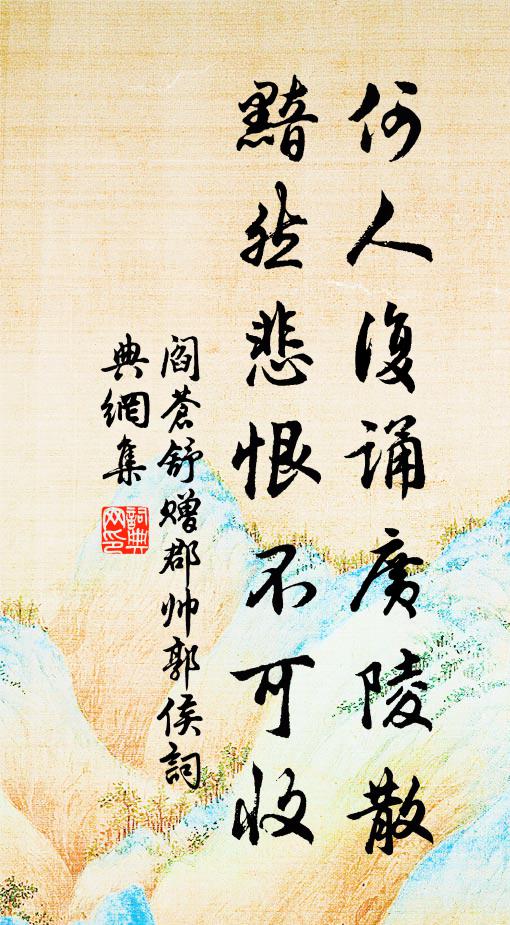 何人復誦廣陵散
黯然悲恨不可收
閻蒼舒贈郡帅郭侯詞
典網集
詞典
网印